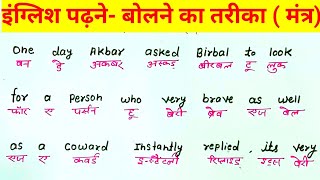 इंग्लिश पढ़ने- बोलने का तरीका ( मंत्र)
One day Akbar asked Birbal to look
वन डे अकबर आस्कड बीरबल टू लुक
for a Person who very brave as well
फॉर ए पर्सन हू वेरी ब्रेव एज वेल
as a coward Instantly replied, its very
एज ए कवर्ड इन्स्टेंटली रिप्लाइड इट्स वेरी